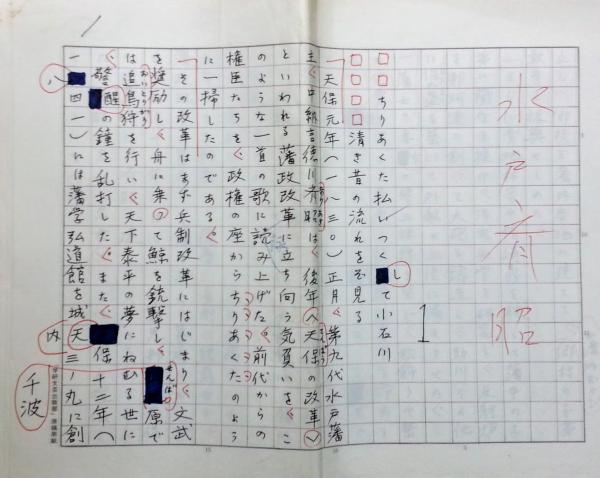 水戸斉昭
1
□□ちりあくた払いつくして小石川
□□清き昔の流れをぞ見る
天保元年(一八三〇)正月、第九代水戸藩
主、中納言徳川斉昭は、後年〈天保の改革〉
といわれる藩政改革に立ち向う気負いを、こ
のような一首の歌に読み上げた。前代からの
権臣たちを、政権の座からちりあくたのよう
に一掃したのである。
その改革はまず兵制改革にはじまり、文武
を奨励し、舟に乗って鯨を銃撃し、せんば原で
は追鳥狩を行い、天下泰平の夢にねむる世に
おいとりかり
警醒の鐘を乱打した。また、天保十二年(
一八四一)には藩学弘道館を城内三ノ丸に創
千波